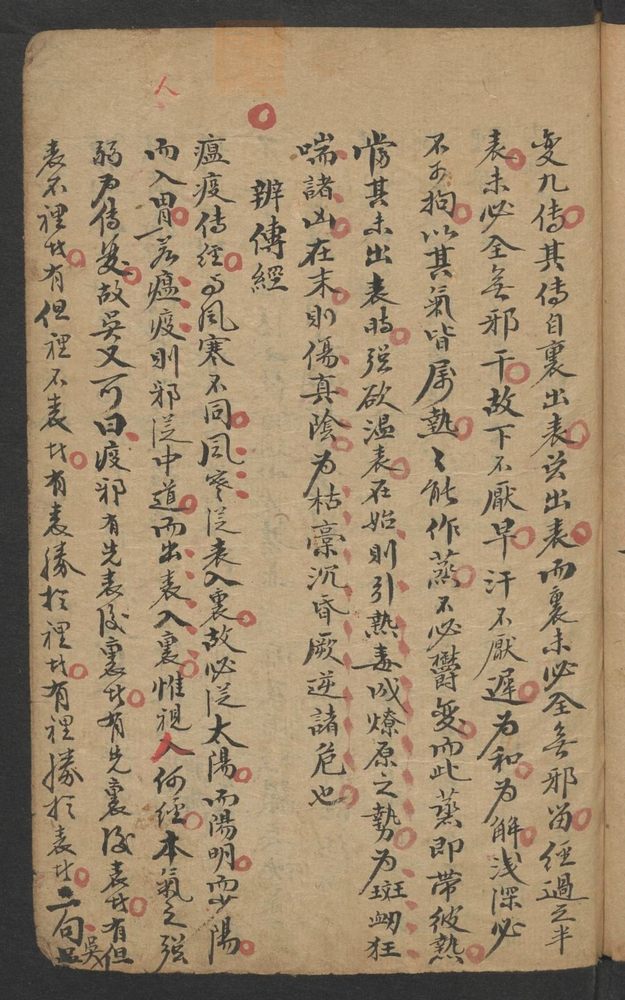 変九傳其傳自裏出表〻出表而裏未必全無邪留経過之半
表未必全無邪干故下不厭早汗不厭遲为和为解浅深必
不可拘以其氣皆属熱〻能作蒸不必欝変而此蒸即帶彼熱
當其未出表時强欲温表在始則引熱毒成燎原之勢为斑衂狂
喘諸凶在末則傷真陰为枯槀沉昏厥逆諸危也
辨傳經
瘟疫傳經与風寒不同風寒從表入裏故必從太陽而陽明而少陽
而入胃若瘟疫則邪從中道而出表入裏惟視人何經本氣之强
弱为傳変故吳又可曰疫邪有先表後裏者有先裏後表者有但
表不裡者有但裡不表者有表勝於裡者有裡勝於表者二句吳